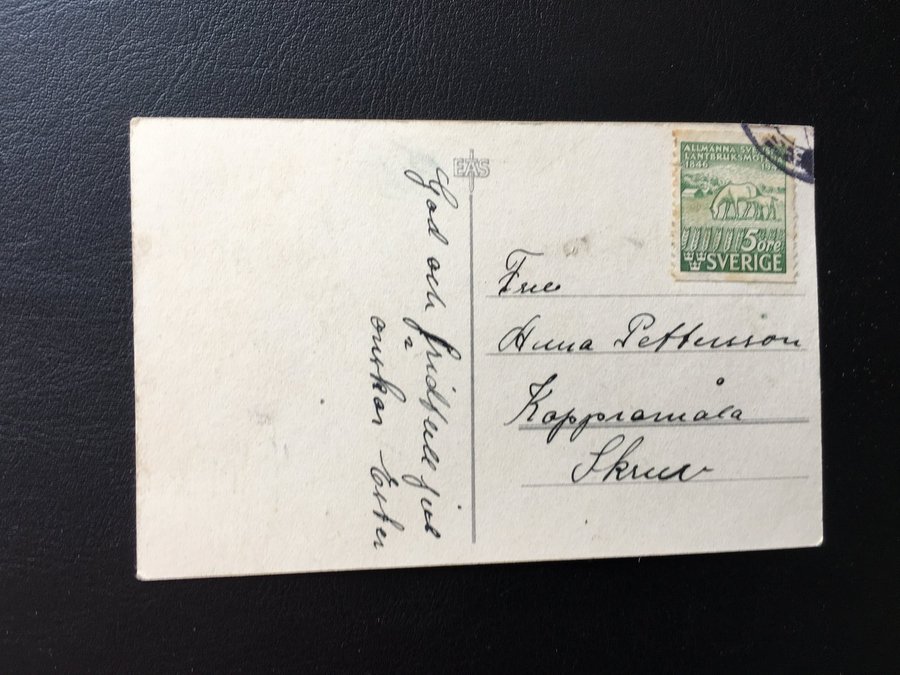 EAS
God och fridfull jul
önskar Ester
ALLMÄNNA SVENSKA
LANTBRUKSMÖTET
1846
5 öre
SVERIGE
Fru
Anna Pettersson
Koppramåla
Skruv